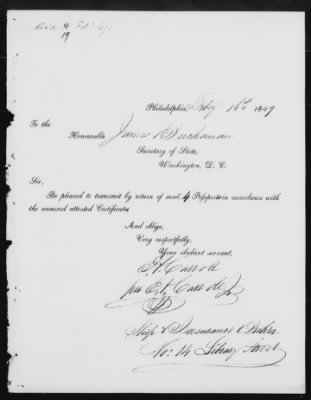 Rec'd 19 Feb
Philadelphia, Feby 16th 1849
To the
Honourable James Buchanan
Secretary of State,
Washington, D. C.
Sir,
Be pleased to transmit by return of mail, 4 Passports in accordance with
the annexed attested Certificates
And Oblige,
Very respectfully,
Your obedient servant,
per
Ship & Insurance Broker
No: 14 Library Street